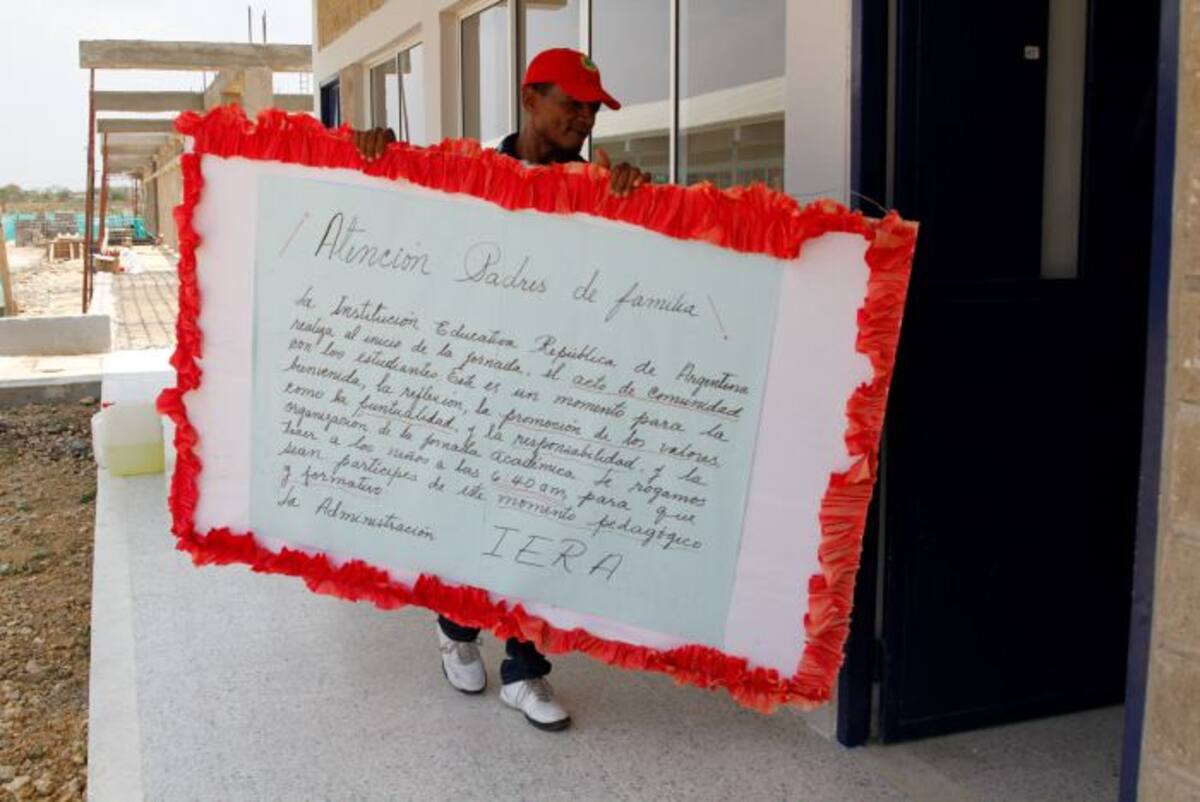 ¡Atención Padres de familia!
La Institución Educativa República de Argentina
realiza al inicio de la jornada, el acto de comunidad
con los estudiantes. Este es un momento para la
bienvenida, la reflexion, la promoción de los valores,
como la puntualidad, y la responsabilidad, y la
organización de la jornada académica. Le rogamos
traer a los niños a las 6:40 am, para que
sean partícipes de este momento pedagógico
y formativo
La Administración
IERA